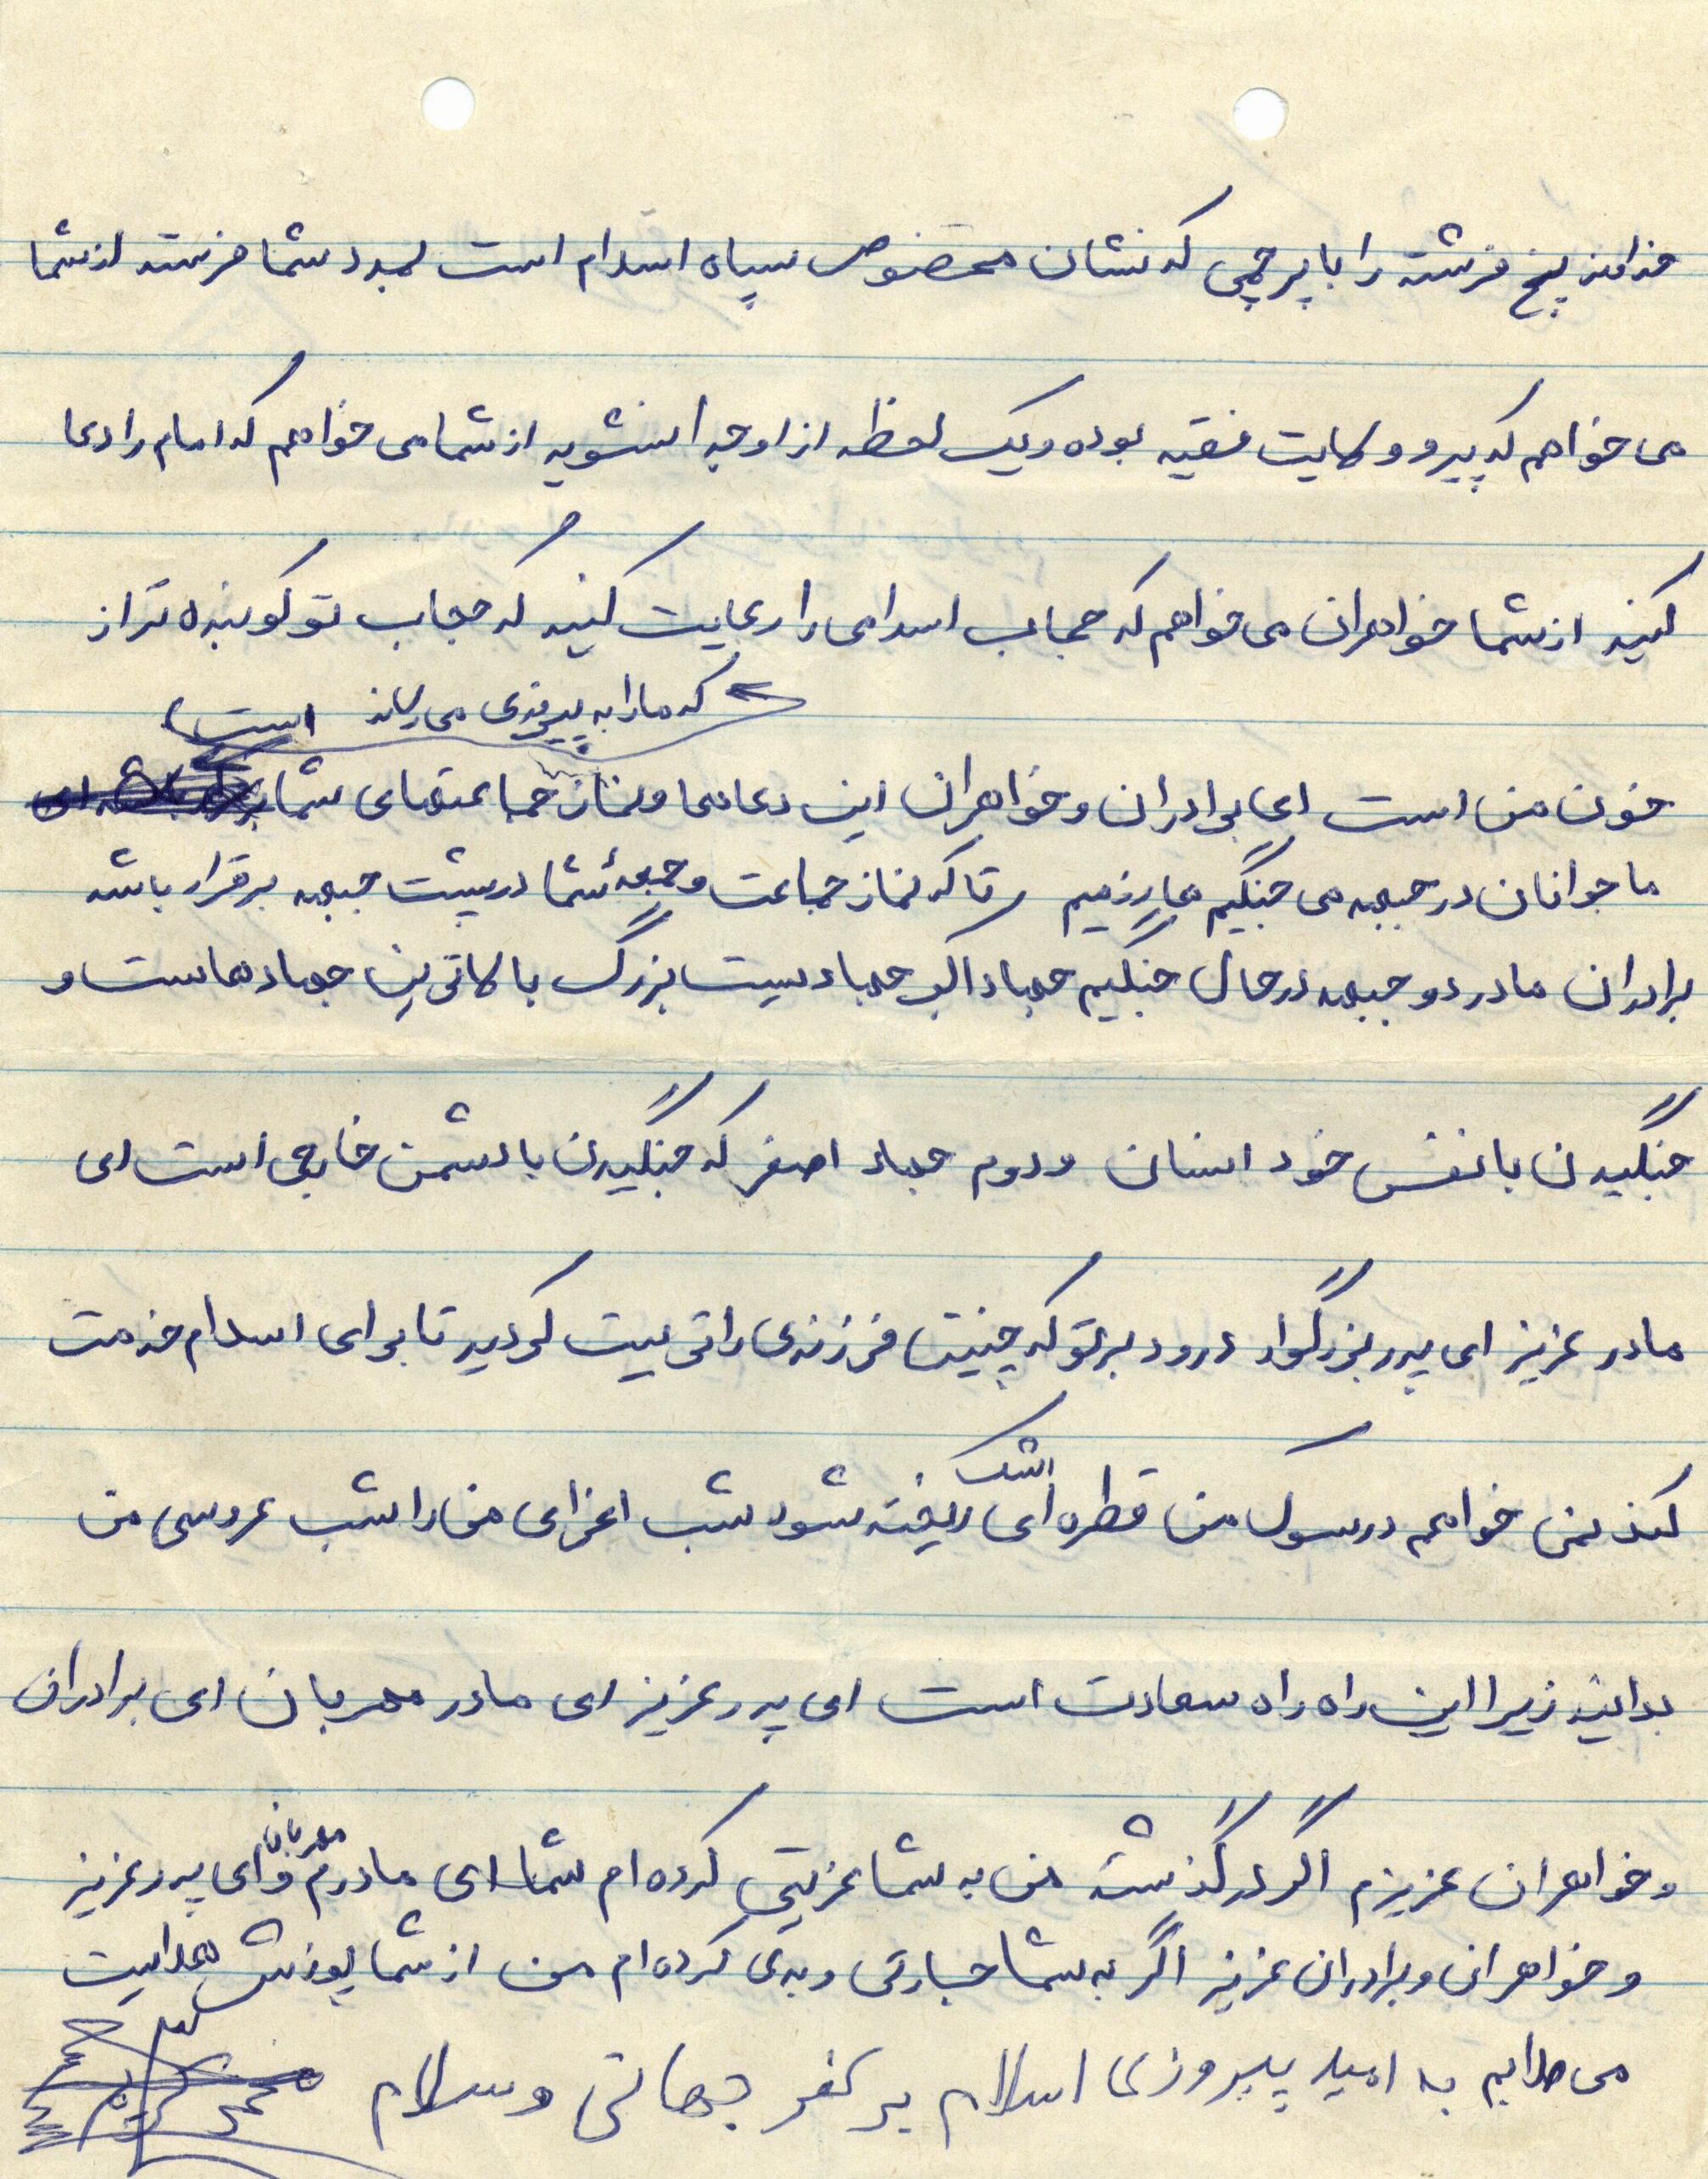 خداوند پنج فرشته را با پرچمی که نشان مخصوص سپاه اسلام است بمدد شما فرستد از شما
می خواهم که پیرو ولایت فقیه بوده و یک لحظه از او جدا نشوید از شما می خواهم که امام را دعا
کنید از شما خواهران می خواهم که حجاب اسلامی را رعایت کنید که حجاب تو کوبنده تر از
که ما را به پیروزی می رساند است
خون من است ای برادران و خواهران این دعاها و نماز جماعتهای شما
ما جوانان در جبهه می جنگیم تا که نماز جماعت و جمعهٔ شما در پشت جبهه برقرار باشد
برادران ما در دو جبهه در حال جنگیم جهاد اکبر جهادیست بزرگ بالاترین جهادهاست و
جنگیدن با نفس خود انسان و دوم جهاد اصغر که جنگیدن با دشمن خارجی است ای
مادر عزیز ای پدر بزرگوار درود بر تو که چنین فرزندی را تربیت کردید تا برای اسلام خدمت
کند نمی خواهم در سوگ من قطره ای اشک ریخته شود شب اعزای من را شب عروسی من
بدانید زیرا این راه راه سعادت است ای پدر عزیز ای مادر مهربان ای برادران
و خواهران عزیزم اگر در گذشته من به شما کرده ام شما ای مادرم مهربان و ای پدر عزیز
و خواهران و برادران عزیز اگر به شما جسارتی و بدی کرده ام من از شما پوزش
می طلبم به امید پیروزی اسلام بر کفر جهانی وسلام